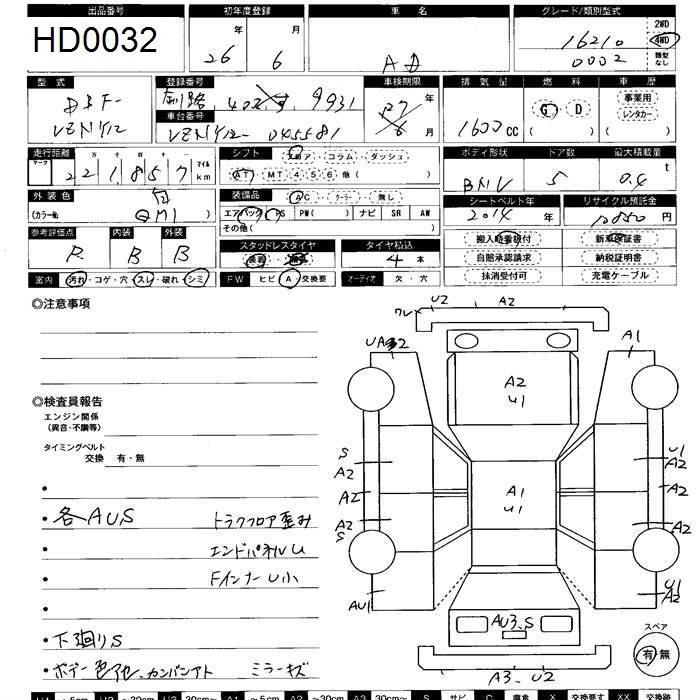 出品番号 初年度登録 車 名 グレード/類別型式
HD0032 26年 6月 AD 16210 2WD
0002 4WD
類型なし
型 式 登録番号 車検期限 排 気 量 燃 料 車 歴
DBF- 釧路 402 9931 27年 事業用
VZNY12 車台番号 VZNY12-045581 6月 1600cc G D レンタカー
走行距離 シフト ボディ形状 ドア数 最大積載量
マーク 万 千 百 十 一 マイル フロア コラム ダッシュ t
221,857 km AT MT 4 5 6 他( ) BNV 5 0.4
外 装 色 白 装備品 AC クーラー 無し シートベルト年 リサイクル預託金
(カラー№ QM1 ) エアバック PS PW( ) ナビ SR AW 2014年 円
その他( )
参考評価点 内装 外装 スタッドレスタイヤ タイヤ積込 搬入時看板付 新車保証書
R B B 装着 積込 4本 自賠承認請求 納税証明書
室内 汚れ・コゲ・穴・スレ・破れ・シミ FW ヒビ A 交換要 オーディオ 欠・穴 抹消受付可 充電ケーブル
◎注意事項
◎検査員報告
エンジン関係
(異音・不調等)
タイミングベルト
交換 有・無
・各AUS トラックフロア歪み
エンドパネルU
FインナーU小
・下廻りS
・ボデー色アセ、カンバンアト ミラーキズ
U2 A2
ワレ
UA2 A1
A2
U1
S U1
A2 A2
A1
U1
A2 A2
A2 A2
S
AU1 U1
A2
AU3、S
A3、U2
スペア
有・無